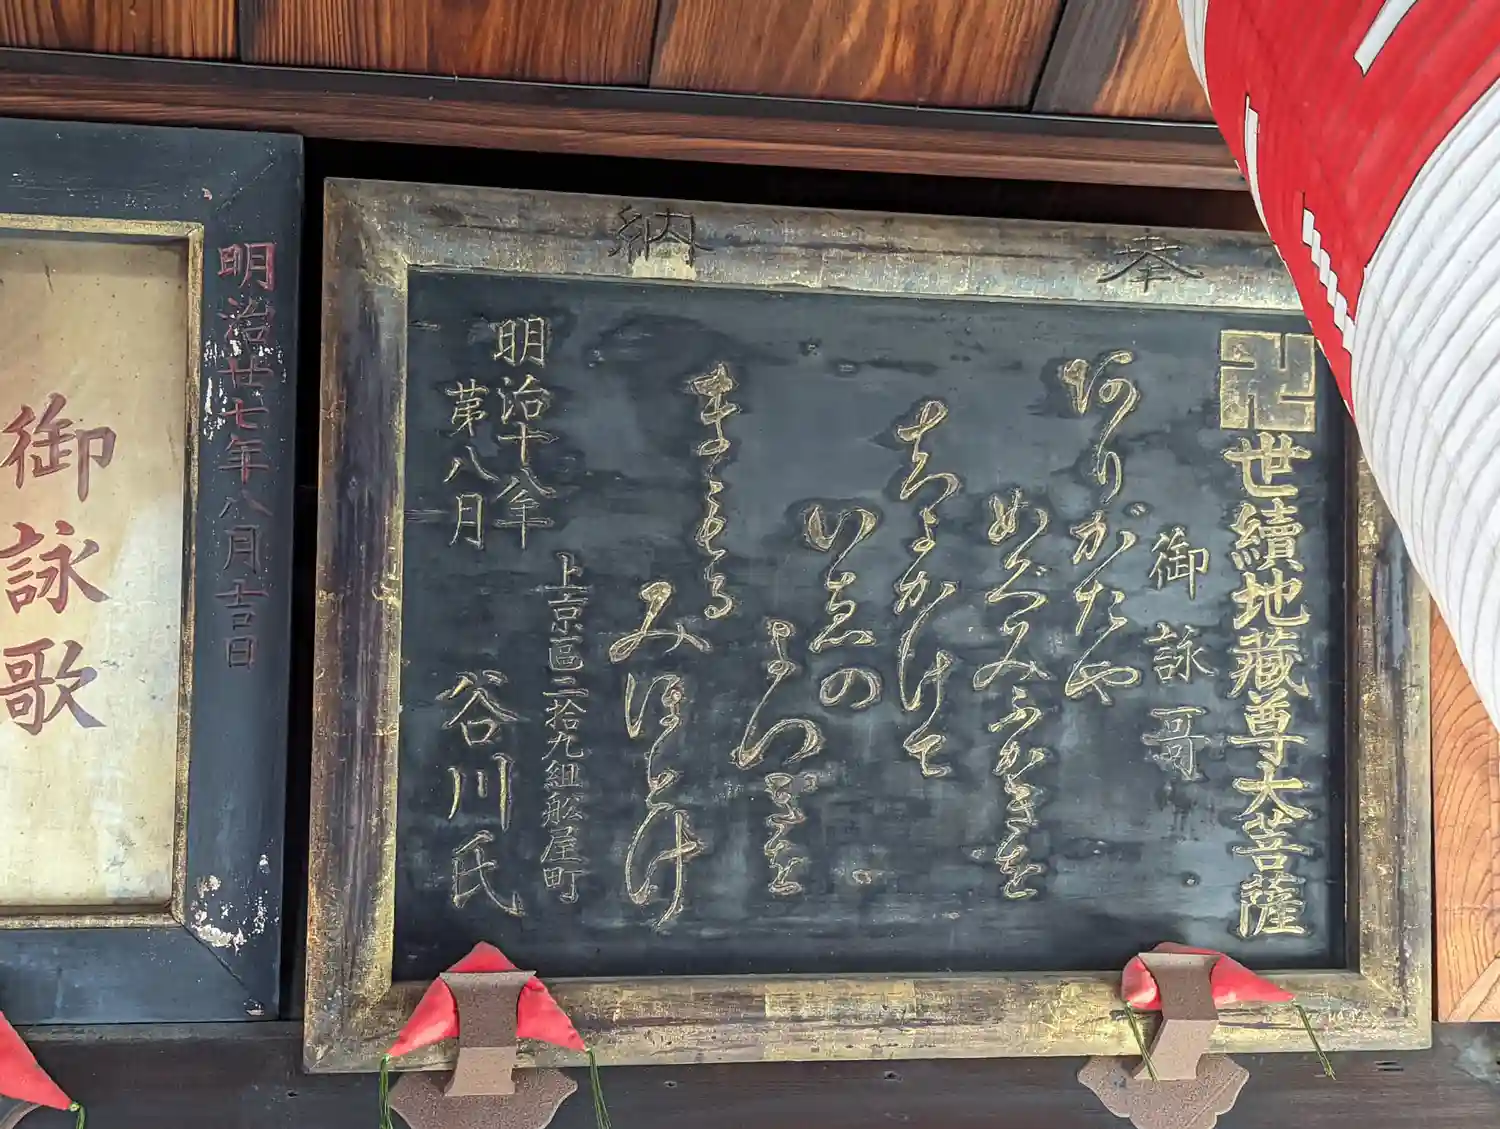 奉納
卍世續地蔵尊大菩薩
御詠哥
ありがたや
めぐみふかきを
ちよかけて
いゑの
よつぎを
まもる
みほとけ
上京區二拾九組舩屋町
明治十八年
第八月
谷川氏
明治廿七年八月吉日
御詠歌